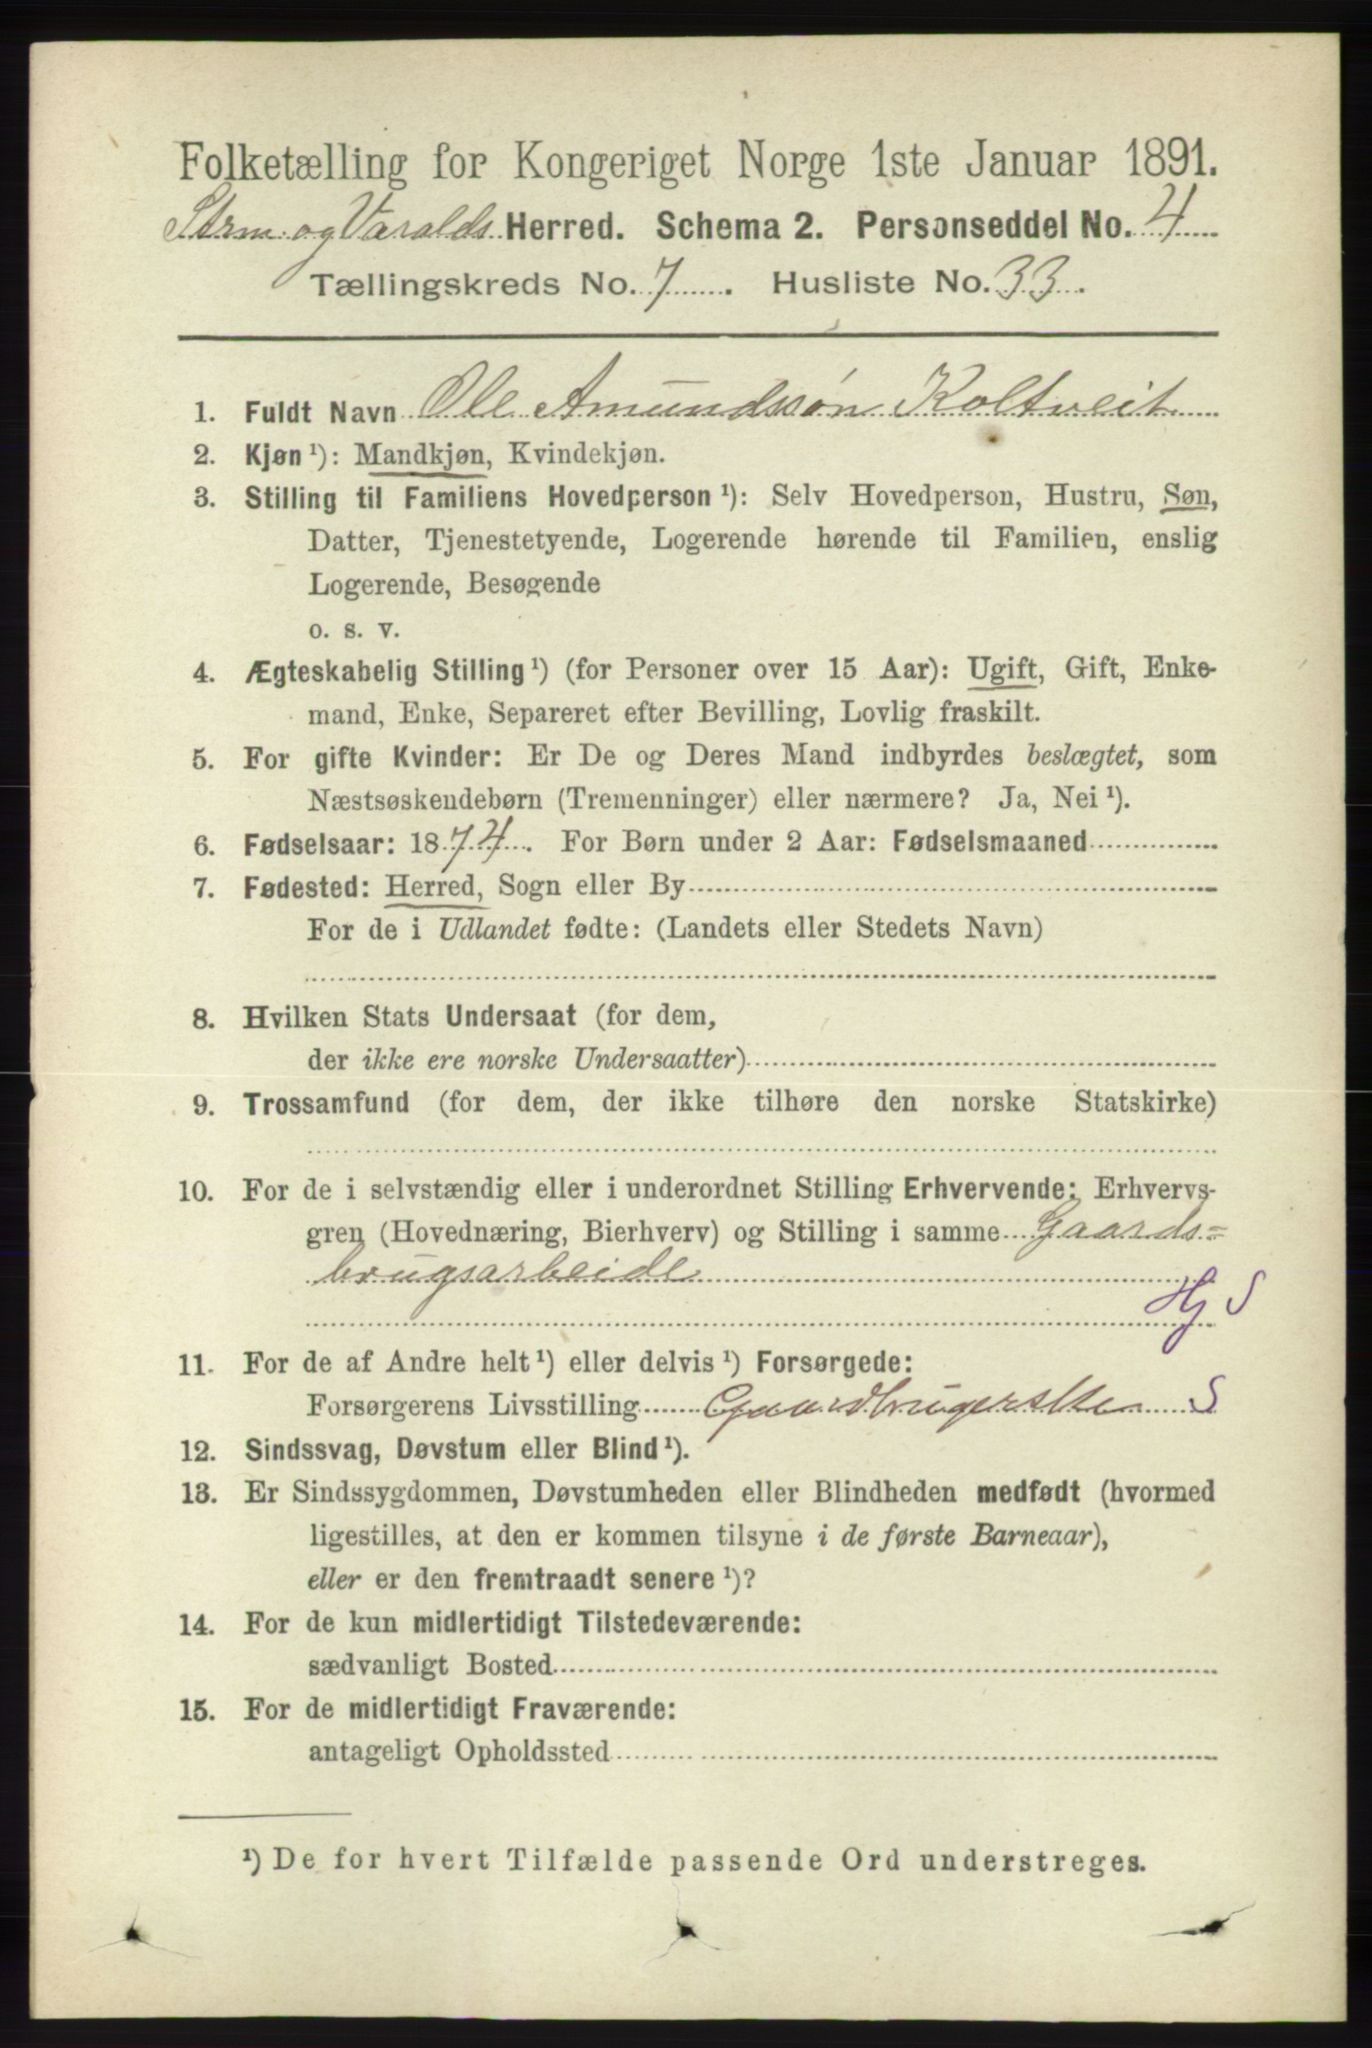 Folketælling for Kongeriget Norge 1ste Januar 1891.
Strm. og Varalds Herred. Schema 2. Personseddel No. 4
Tællingskreds No. 7. Husliste No. 33.
1. Fuldt Navn Ole Amundssøn Koltveit
2. Kjøn ¹): Mandkjøn, Kvindekjøn.
3. Stilling til Familiens Hovedperson ¹): Selv Hovedperson, Hustru, Søn,
Datter, Tjenestetyende, Logerende hørende til Familien, enslig
Logerende, Besøgende
o. s. v.
4. Ægteskabelig Stilling ¹) (for Personer over 15 Aar): Ugift, Gift, Enke-
mand, Enke, Separeret efter Bevilling, Lovlig fraskilt.
5. For gifte Kvinder: Er De og Deres Mand indbyrdes beslægtet, som
Næstsøskendebørn (Tremenninger) eller nærmere? Ja, Nei ¹).
6. Fødselsaar: 1874. For Børn under 2 Aar: Fødselsmaaned
7. Fødested: Herred, Sogn eller By
For de i Udlandet fødte: (Landets eller Stedets Navn)
8. Hvilken Stats Undersaat (for dem,
der ikke ere norske Undersaatter)
9. Trossamfund (for dem, der ikke tilhøre den norske Statskirke)
10. For de i selvstændig eller i underordnet Stilling Erhvervende: Erhvervs-
gren (Hovednæring, Bierhverv) og Stilling i samme Gaards=
brugsarbeide
Hj S
11. For de af Andre helt ¹) eller delvis ¹) Forsørgede:
Forsørgerens Livsstilling S
12. Sindssvag, Døvstum eller Blind ¹).
13. Er Sindssygdommen, Døvstumheden eller Blindheden medfødt (hvormed
ligestilles, at den er kommen tilsyne i de første Barneaar),
eller er den fremtraadt senere ¹)?
14. For de kun midlertidigt Tilstedeværende:
sædvanligt Bosted
15. For de midlertidigt Fraværende:
antageligt Opholdssted
¹) De for hvert Tilfælde passende Ord understreges.